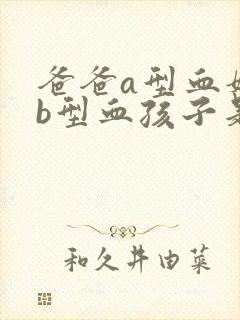 爸爸a型血
b型血孩子
和久井由菜